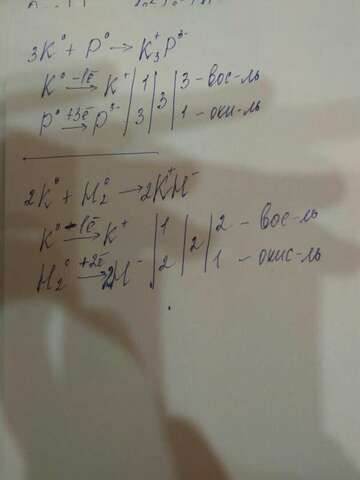 3K⁰ + P⁰ → K₃⁺P³⁻
K⁰ −1ē→ K⁺ | 1 | 3 | 3 – вос-ль
P⁰ +3ē→ P³⁻ | 3 | | 1 – оки-ль
2K⁰ + H₂⁰ → 2K⁺H⁻
K⁰ −1ē→ K⁺ | 1 | 2 | 2 – вос-ль
H₂⁰ +2ē→ 2H⁻ | 2 | | 1 – окис-ль